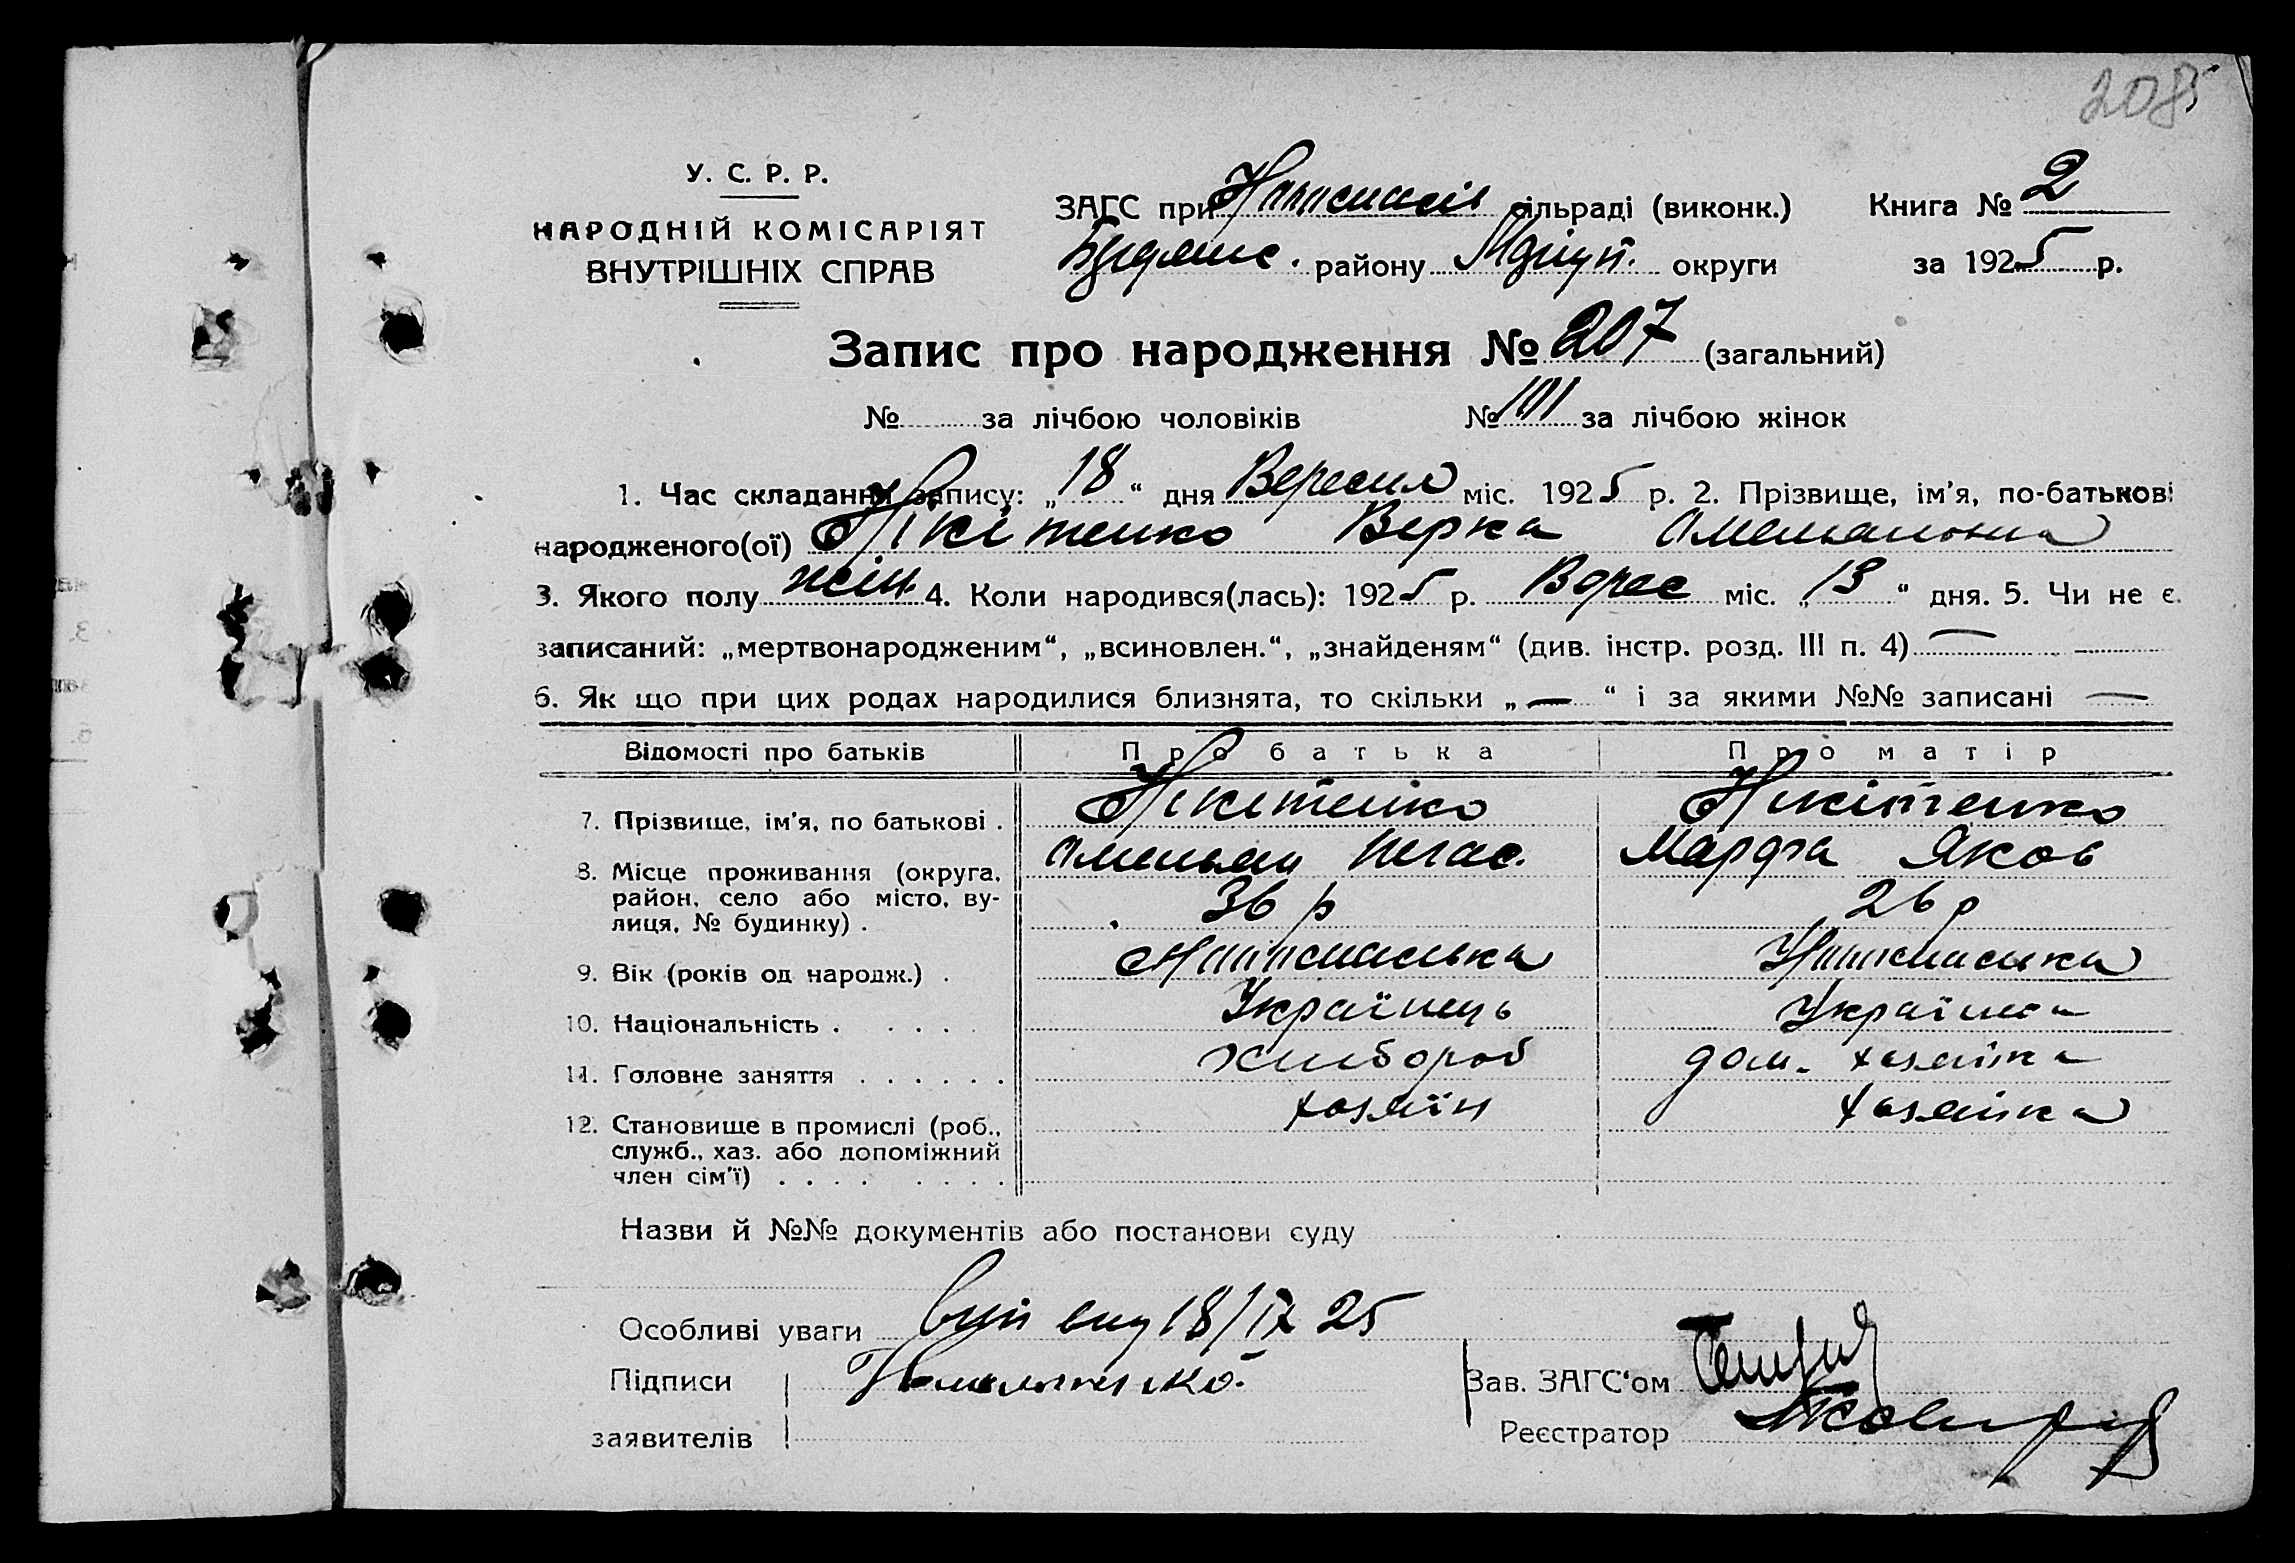 208
У. С. Р. Р.
НАРОДНІЙ КОМІСАРІЯТ
ВНУТРІШНІХ СПРАВ
ЗАГС при сільраді (виконк.) Книга № 2
району Маріуп. округи за 1925 р.
Запис про народження № 207 (загальний)
№ за лічбою чоловіків № 101 за лічбою жінок
1. Час складання запису: „18“ дня Вересня міс. 1925 р. 2. Прізвище, ім'я, по-батькові
народженого(ої) Нікітенко Верка Омельяновна
3. Якого полу жін. 4. Коли народився(лась): 1925 р. Верес міс. „13“ дня. 5. Чи не є
записаний: „мертвонародженим“, „всиновлен.“, „знайденям“ (див. інстр. розд. III п. 4) —
6. Як що при цих родах народилися близнята, то скільки „—“ і за якими №№ записані —
Відомості про батьків Про батька Про матір
7. Прізвище, ім'я, по батькові . Нікітенко Нікітенко
Омельян Марфа Яков
8. Місце проживання (округа, район, село або місто, вулиця, № будинку) . 36 р 26 р
9. Вік (років од народж.) .
10. Національність . . . . Українець Українка
11. Головне заняття . . . . . . хлибороб дом. хозяйка
12. Становище в промислі (роб., служб., хаз. або допоміжний член сім'ї) . . . . . . . . хозяїн хозяйка
Назви й №№ документів або постанови суду
Особливі уваги вид 18/IX 25
Підписи
заявителів
Зав. ЗАГС'ом
Реєстратор